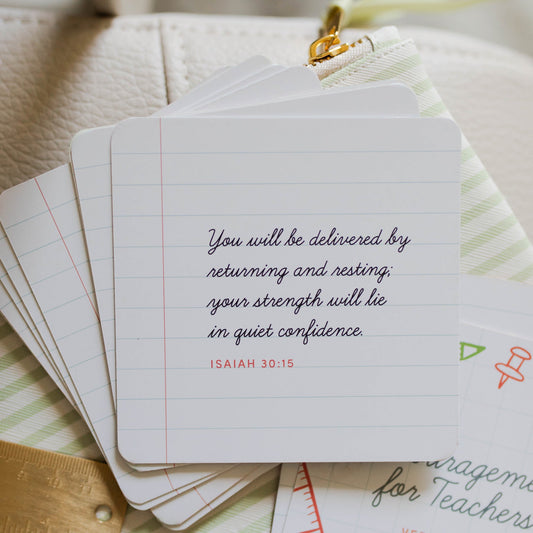 You will be delivered by
returning and resting;
your strength will lie
in quiet confidence.
ISAIAH 30:15
for Teachers